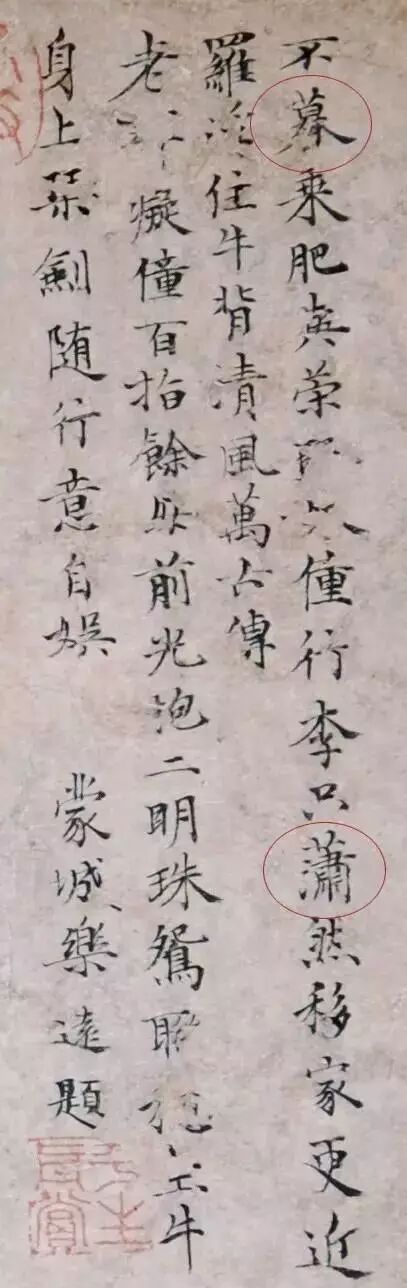 不慕乘肥與榮僮行李只蕭然移家更近
羅浮住牛背清風萬古傳
老癡僮百指餘眼前光泡二明珠鴛穩坐牛
身上琹劍随行意自娛 蒙城樂遠題